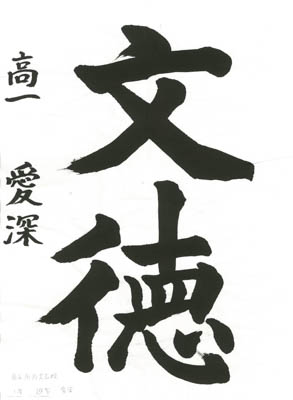 文徳
高一 愛深